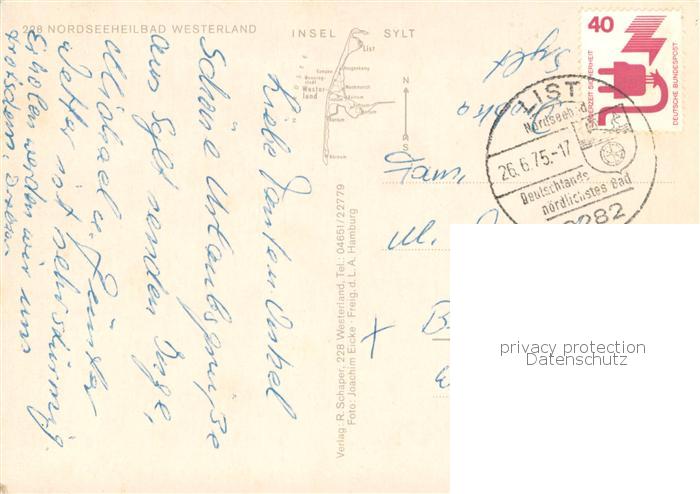 228 NORDSEEHEILBAD WESTERLAND
INSEL SYLT
List
Kampen
Wester-
land
N
S
40
JEDERZEIT SICHERHEIT
DEUTSCHE BUNDESPOST
LIST
Nordseebad
26.6.75.-17
Deutschlands
nördlichstes Bad
2282
Sylt
Fam.
M.
B
Liebe Tante u. Onkel
Schöne Urlaubsgrüße
aus Sylt senden Inge,
Michael u. Günter
Wetter ist sehr stürmig.
Erholen werden wir uns
trotzdem.
Verlag: R. Schaper, 228 Westerland, Tel.: 04651/22779
Foto: Joachim Eicke · Freig. d. L. A. Hamburg
privacy protection
Datenschutz